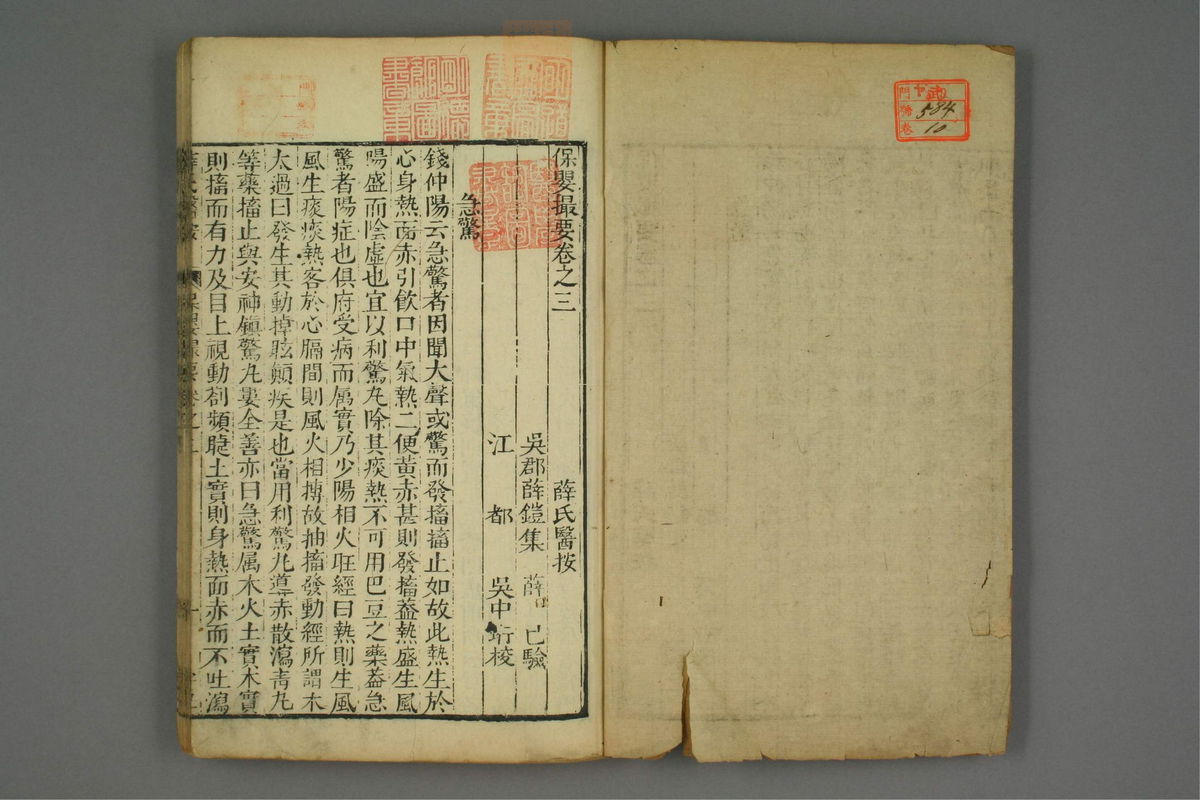 保嬰撮要卷之三
薛氏醫按
吳郡薛鎧集 薛 已驗
江都 吳中珩校
急驚
錢仲陽云急驚者因聞大聲或驚而發搐搐止如故此熱生於
心身熱面赤引飲口中氣熱二便黄赤甚則發搐葢熱盛生風
陽盛而陰虛也宜以利驚丸除其痰熱不可用巴豆之藥葢急
驚者陽症也俱府受病而属實乃少陽相火旺經曰熱則生風
風生痰痰熱客於心膈間則風火相摶故抽搐發動經所謂木
太過曰發生其動掉眩顛疾是也當用利驚丸導赤散瀉青丸
等藥搐止與安神鎮驚丸婁全善亦曰急驚属木火土實木實
則搐而有力及目上視動劄頻睫土實則身熱面赤而不吐瀉
門
號
卷
584
10